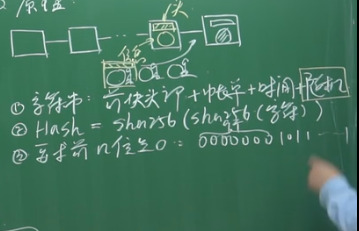 原理:
头
信息
① 字符串: 前块头部 + 账单 + 时间 + 随机
② Hash = sha256 (sha256 (字符))
③ 要求前n位是0: 00000001011 … 1